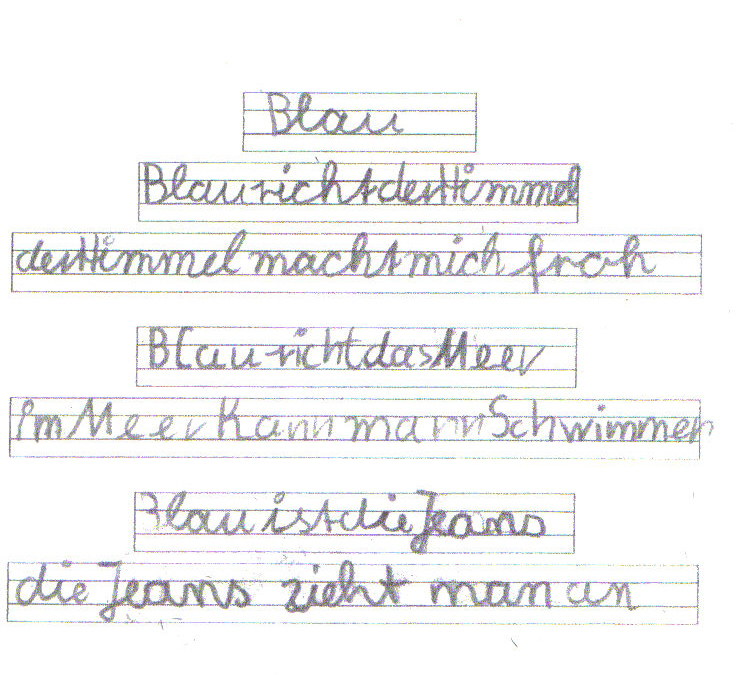 Blau
Blau richt der Himmel
der Himmel macht mich froh
Blau richt das Meer
im Meer Kann mann Schwimmen
Blau ist die Jeans
die Jeans zieht man an